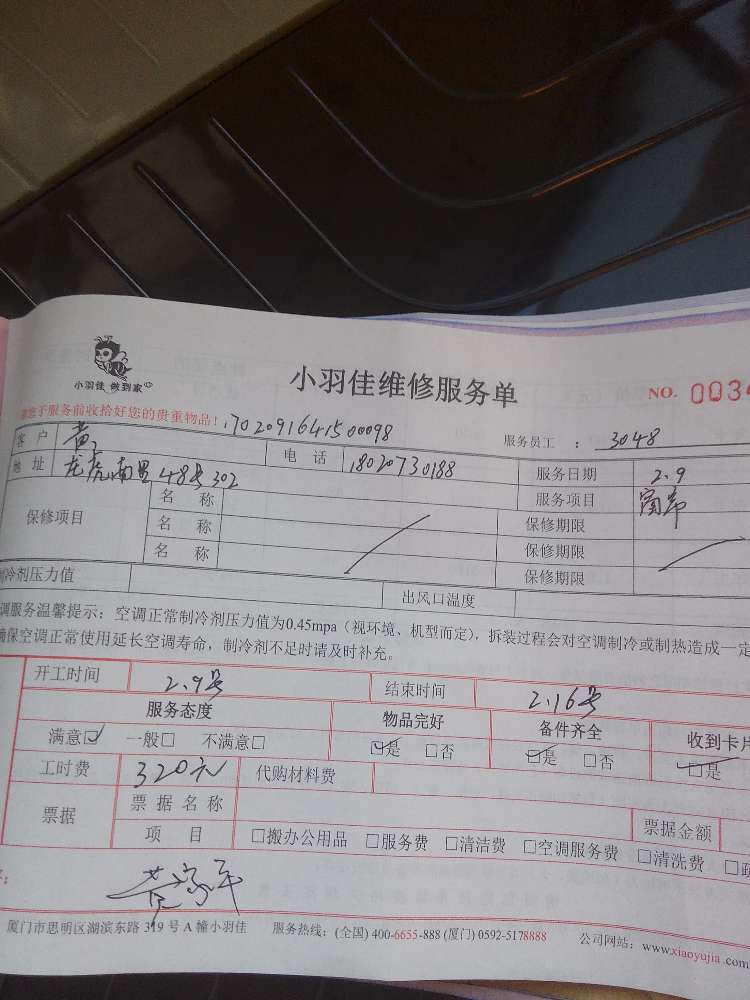 小羽佳 做到家
小羽佳维修服务单
NO. 0034
您于服务前收拾好您的贵重物品！
1702091641500098
服务员工 ： 3048
客 户 黄 电 话 18020730188 服务日期 2.9
地 址 龙虎南里48号302 服务项目 窗帘
保修项目 名 称 保修期限
名 称 保修期限
名 称 保修期限
制冷剂压力值 出风口温度
调服务温馨提示：空调正常制冷剂压力值为0.45mpa（视环境、机型而定），拆装过程会对空调制冷或制热造成一定
确保空调正常使用延长空调寿命，制冷剂不足时请及时补充。
开工时间 2.9号 结束时间 2.16号
服务态度 物品完好 备件齐全 收到卡片
满意☑ 一般□ 不满意□ ☑是 □否 ☑是 □否 ☑是
工时费 320元 代购材料费
票据 票据名称 票据金额
项 目 □搬办公用品 □服务费 □清洁费 □空调服务费 □清洗费 □疏
厦门市思明区湖滨东路 319 号 A 幢小羽佳 服务热线：(全国) 400-6655-888 (厦门) 0592-5178888 公司网站：www.xiaoyujia.com